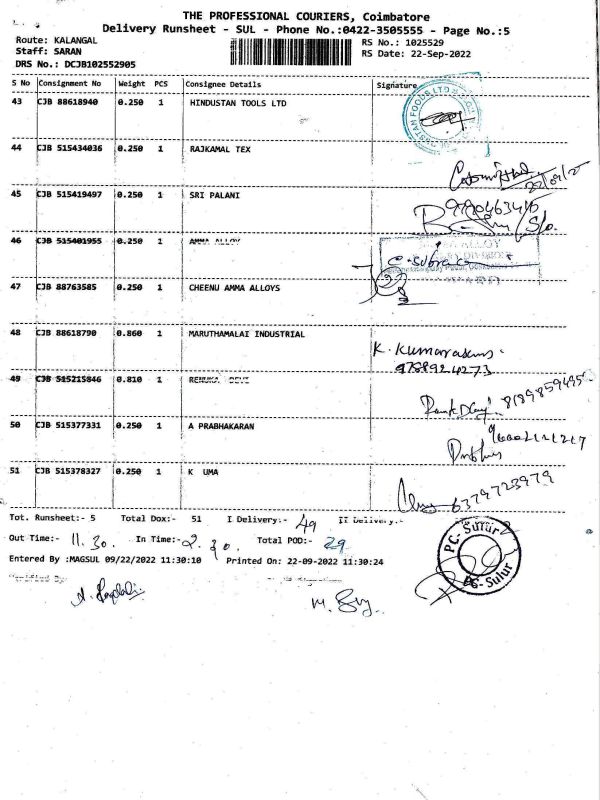 THE PROFESSIONAL COURIERS, Coimbatore
Delivery Runsheet - SUL - Phone No.:0422-3505555 - Page No.:5
Route: KALANGAL
RS No.: 1025529
Staff: SARAN
RS Date: 22-Sep-2022
DRS No.: DCJB102552905
S No Consignment No Weight PCS Consignee Details Signature
43 CJB 88618940 0.250 1 HINDUSTAN TOOLS LTD
44 CJB 515434036 0.250 1 RAJKAMAL TEX
22/09/2
45 CJB 515419497 0.250 1 SRI PALANI
46 CJB 515401955 0.250 1 AMMA ALLOY
47 CJB 88763585 0.250 1 CHEENU AMMA ALLOYS
48 CJB 88618790 0.860 1 MARUTHAMALAI INDUSTRIAL
K. Kumarasamy
9788924273
49 CJB 515215846 0.810 1 RENUKA DEVI
8189859495
50 CJB 515377331 0.250 1 A PRABHAKARAN
51 CJB 515378327 0.250 1 K UMA
6379723979
Tot. Runsheet:- 5 Total Dox:- 51 I Delivery:- 49 II Delivery:-
Out Time:- 11.30. In Time:- 2.30. Total POD:- 29
Entered By :MAGSUL 09/22/2022 11:30:10 Printed On: 22-09-2022 11:30:24
PC-Sulur
PC-Sulur